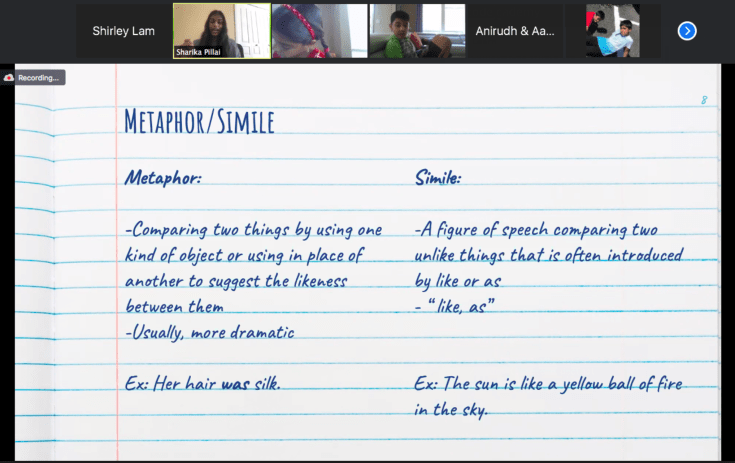 Shirley Lam
Sharika Pillai
Anirudh & Aa...
Recording...
8
METAPHOR/SIMILE
Metaphor:
-Comparing two things by using one
kind of object or using in place of
another to suggest the likeness
between them
-Usually, more dramatic
Ex: Her hair was silk.
Simile:
-A figure of speech comparing two
unlike things that is often introduced
by like or as
- “like, as”
Ex: The sun is like a yellow ball of fire
in the sky.